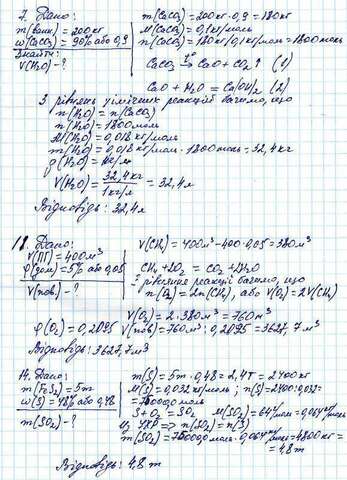 7. Дано:
m(вапн.) = 200кг
w(CaCO₃) = 90% або 0,9
Знайти:
V(H₂O) - ?
m(CaCO₃) = 200кг · 0,9 = 180кг
M(CaCO₃) = 0,1кг/моль
n(CaCO₃) = 180кг/0,1кг/моль = 1800моль
CaCO₃ → CaO + CO₂↑ (1)
CaO + H₂O = Ca(OH)₂ (2)
З рівнянь хімічних реакцій бачимо, що
n(H₂O) = n(CaCO₃)
n(H₂O) = 1800моль
M(H₂O) = 0,018кг/моль
m(H₂O) = 0,018кг/моль · 1800моль = 32,4кг
ρ(H₂O) = 1кг/л
V(H₂O) = 32,4кг / 1кг/л = 32,4л
Відповідь: 32,4л
Дано:
V(ПГ) = 400м³
φ(дом) = 5% або 0,05
V(пов.) - ?
V(CH₄) = 400м³ - 400 · 0,05 = 380м³
CH₄ + 2O₂ = CO₂ + 2H₂O
З рівняння реакції бачимо, що
n(O₂) = 2n(CH₄), або V(O₂) = 2V(CH₄)
V(O₂) = 2 · 380м³ = 760м³
φ(O₂) = 0,2095 V(пов) = 760м³ : 0,2095 = 3627,7м³
Відповідь: 3627,7м³
Дано:
m(FeS₂) = 5т
w(S) = 48% або 0,48
m(SO₂) - ?
m(S) = 5т · 0,48 = 2,4т = 2400кг
M(S) = 0,032кг/моль; n(S) = 2400 : 0,032 =
= 75000моль
S + O₂ = SO₂ M(SO₂) = 64г/моль = 0,064кг/моль
n(SO₂) = n(S)
m(SO₂) = 75000моль · 0,064кг/моль = 4800кг =
= 4,8т
Відповідь: 4,8т